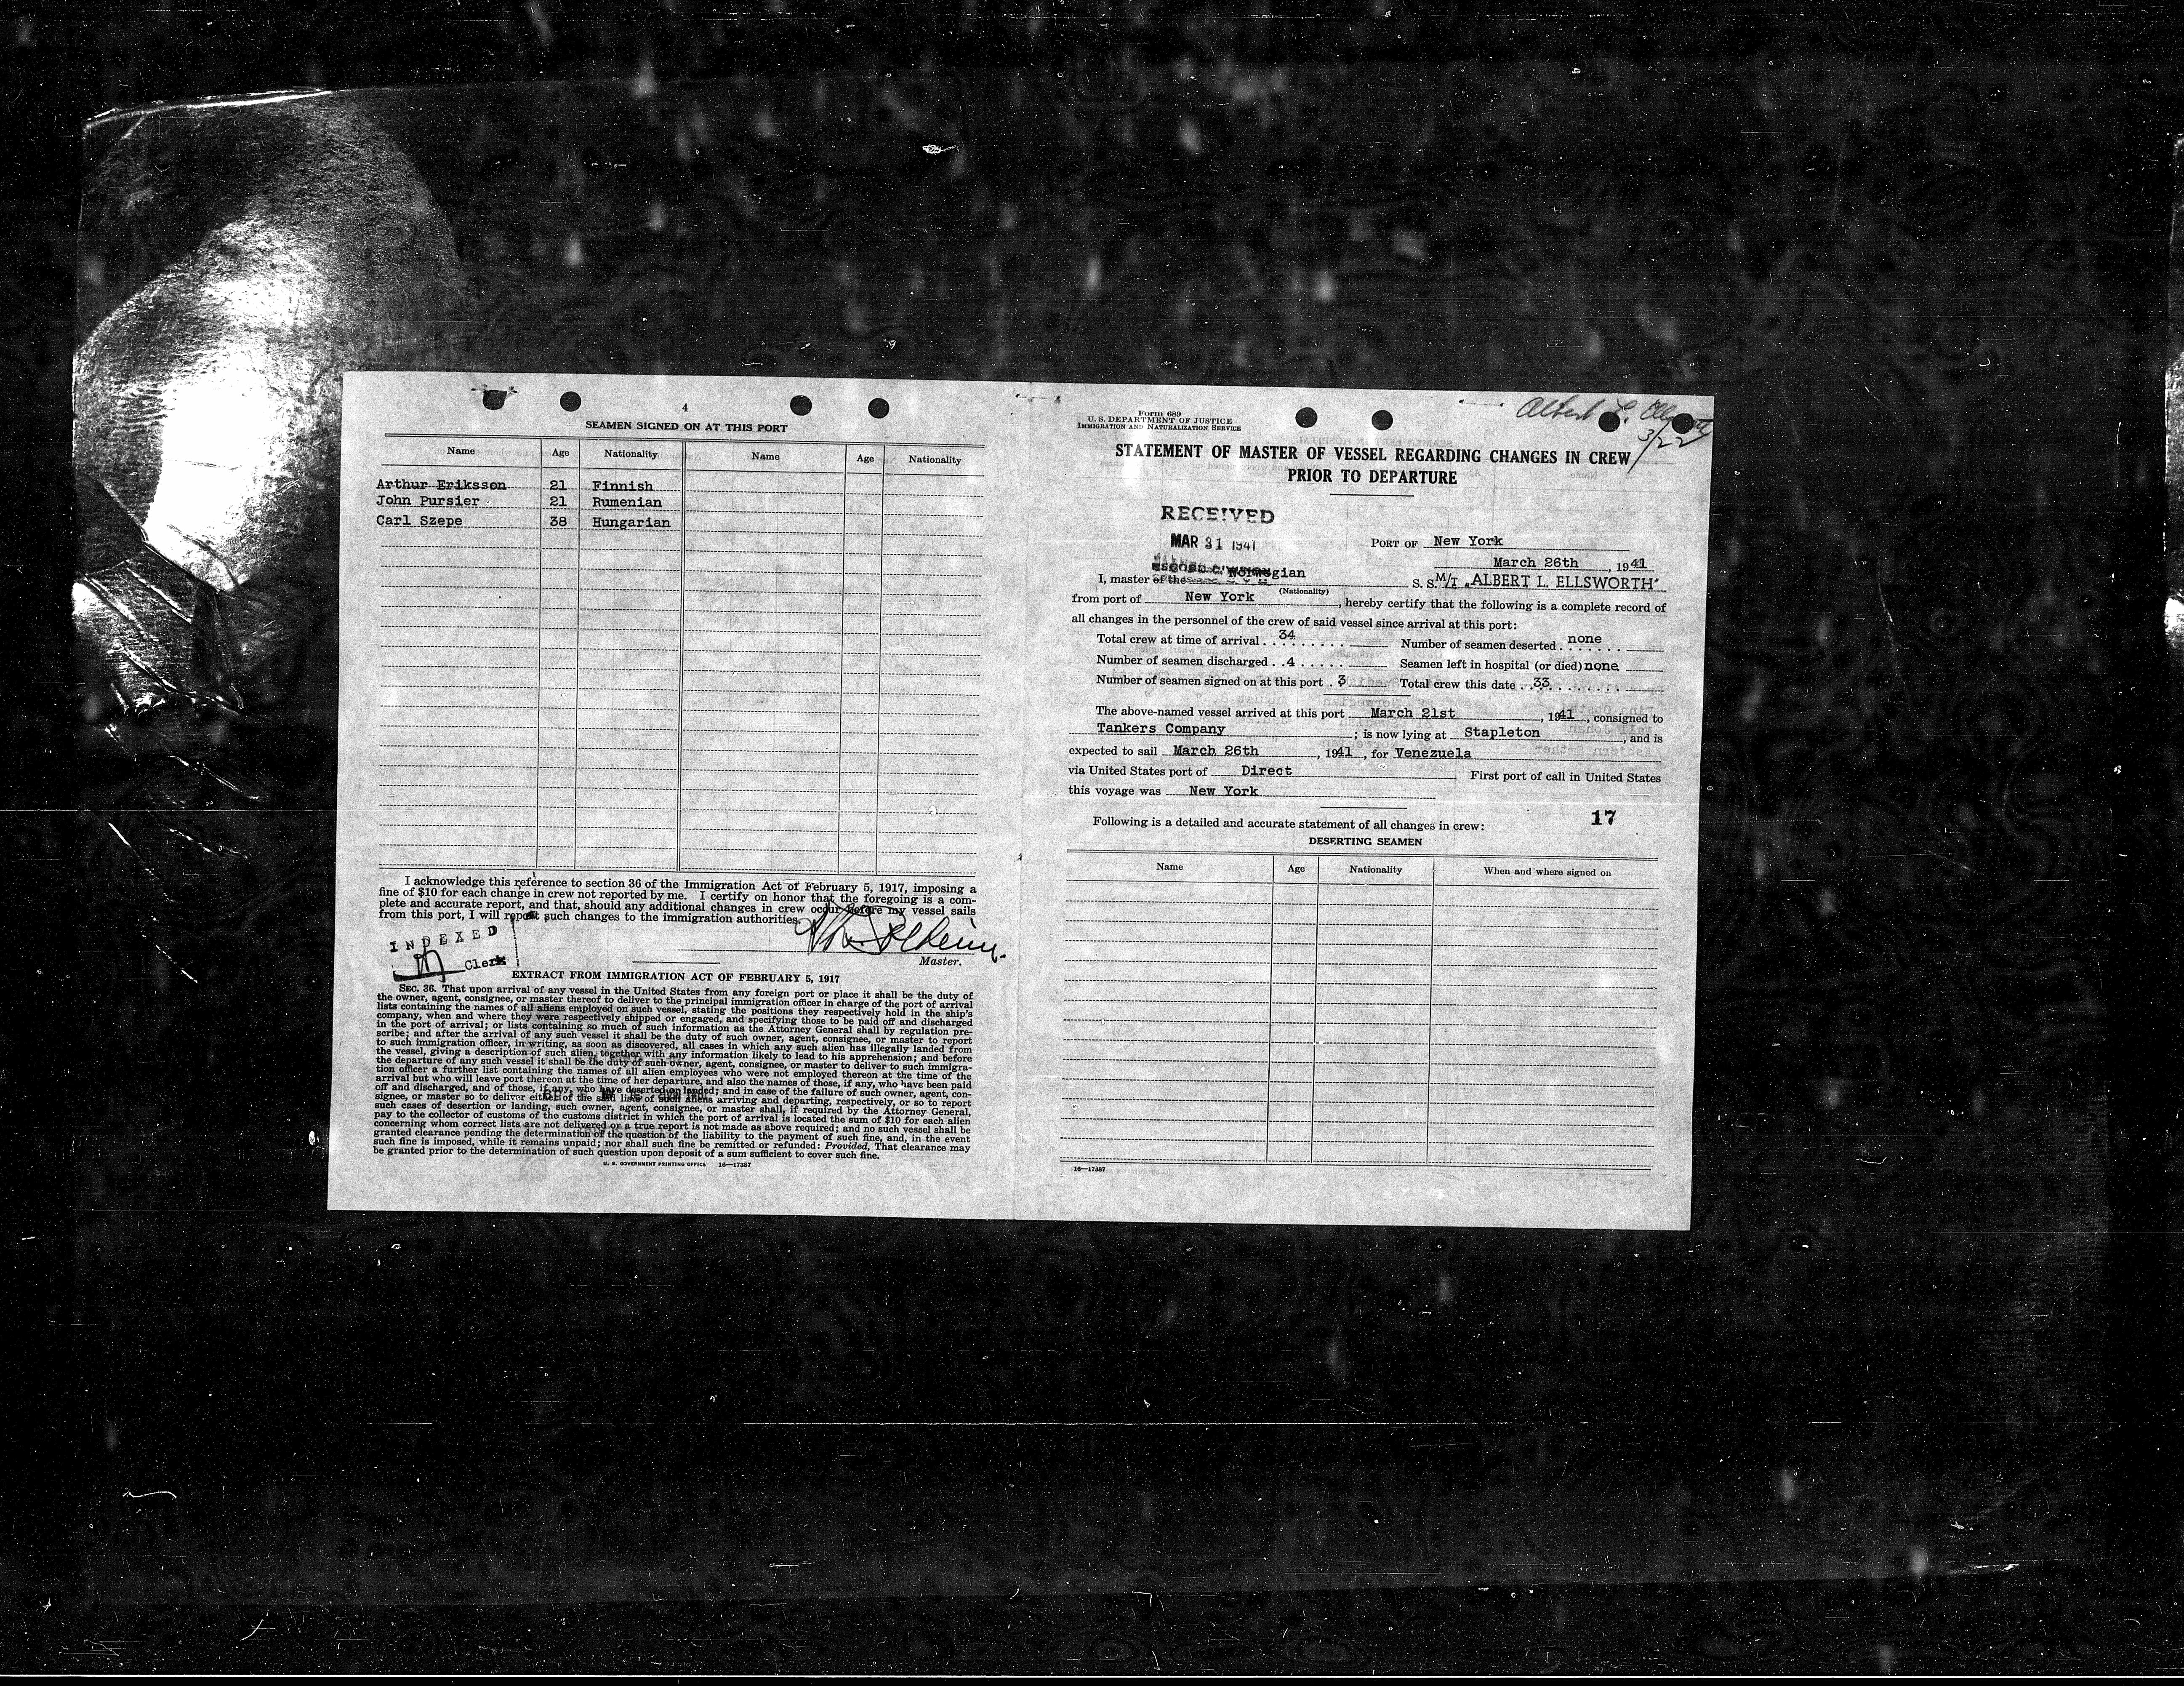 4
SEAMEN SIGNED ON AT THIS PORT
Name Age Nationality Name Age Nationality
Arthur Eriksson 21 Finnish
John Pursier 21 Rumenian
Carl Szepe 38 Hungarian
I acknowledge this reference to section 36 of the Immigration Act of February 5, 1917, imposing a
fine of $10 for each change in crew not reported by me. I certify on honor that the foregoing is a com-
plete and accurate report, and that, should any additional changes in crew occur before my vessel sails
from this port, I will report such changes to the immigration authorities.
INDEXED
Clerk
Master.
EXTRACT FROM IMMIGRATION ACT OF FEBRUARY 5, 1917
SEC. 36. That upon arrival of any vessel in the United States from any foreign port or place it shall be the duty of
the owner, agent, consignee, or master thereof to deliver to the principal immigration officer in charge of the port of arrival
lists containing the names of all aliens employed on such vessel, stating the positions they respectively hold in the ship's
company, when and where they were respectively shipped or engaged, and specifying those to be paid off and discharged
in the port of arrival; or lists containing so much of such information as the Attorney General shall by regulation pre-
scribe; and after the arrival of any such vessel it shall be the duty of such owner, agent, consignee, or master to report
to such immigration officer, in writing, as soon as discovered, all cases in which any such alien has illegally landed from
the vessel, giving a description of such alien, together with any information likely to lead to his apprehension; and before
the departure of any such vessel it shall be the duty of such owner, agent, consignee, or master to deliver to such immigra-
tion officer a further list containing the names of all alien employees who were not employed thereon at the time of the
arrival but who will leave port thereon at the time of her departure, and also the names of those, if any, who have been paid
off and discharged, and of those, if any, who have deserted or landed; and in case of the failure of such owner, agent, con-
signee, or master so to deliver either of the said lists of such aliens arriving and departing, respectively, or so to report
such cases of desertion or landing, such owner, agent, consignee, or master shall, if required by the Attorney General,
pay to the collector of customs of the customs district in which the port of arrival is located the sum of $10 for each alien
concerning whom correct lists are not delivered or a true report is not made as above required; and no such vessel shall be
granted clearance pending the determination of the question of the liability to the payment of such fine, and, in the event
such fine is imposed, while it remains unpaid; nor shall such fine be remitted or refunded: Provided, That clearance may
be granted prior to the determination of such question upon deposit of a sum sufficient to cover such fine.
U. S. GOVERNMENT PRINTING OFFICE 16—17387
Form 689
U. S. DEPARTMENT OF JUSTICE
IMMIGRATION AND NATURALIZATION SERVICE
Albert L.
3/22
STATEMENT OF MASTER OF VESSEL REGARDING CHANGES IN CREW
PRIOR TO DEPARTURE
RECEIVED
MAR 31 1941
PORT OF New York
March 26th, 1941
I, master of the Norwegian S. S. M/T "ALBERT L. ELLSWORTH"
(Nationality)
from port of New York, hereby certify that the following is a complete record of
all changes in the personnel of the crew of said vessel since arrival at this port:
Total crew at time of arrival . 34 Number of seamen deserted . none
Number of seamen discharged . . 4 Seamen left in hospital (or died) none
Number of seamen signed on at this port . 3 Total crew this date . . 33
The above-named vessel arrived at this port March 21st, 1941, consigned to
Tankers Company; is now lying at Stapleton, and is
expected to sail March 26th, 1941, for Venezuela
via United States port of Direct First port of call in United States
this voyage was New York
17
Following is a detailed and accurate statement of all changes in crew:
DESERTING SEAMEN
Name Age Nationality When and where signed on
16—17387